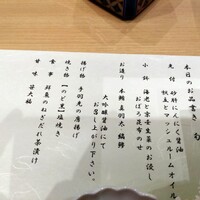 本日のお品書き
先付 砂肝にんにく醤油
秋茄子とマッシュルームオイル
小鉢 海老と京壬生菜のお浸し
おぼろ昆布のせ
お造り 本鮪 真羽太 縞鯵
大吟醸醤油にて
お召し上がり下さい。
揚げ物 手羽先の唐揚げ
焼き物 【のど黒】塩焼き
食事 錦糸のねぎだれ茶漬け
甘味 苺大福